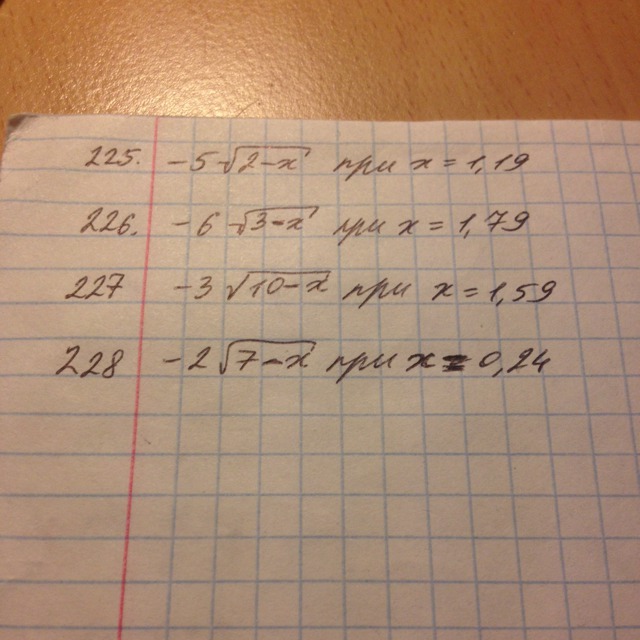 225. -5 √(2-x) при x = 1,19
226. -6 √(3-x) при x = 1,79
227 -3 √(10-x) при x = 1,59
228 -2 √(7-x) при x = 0,24